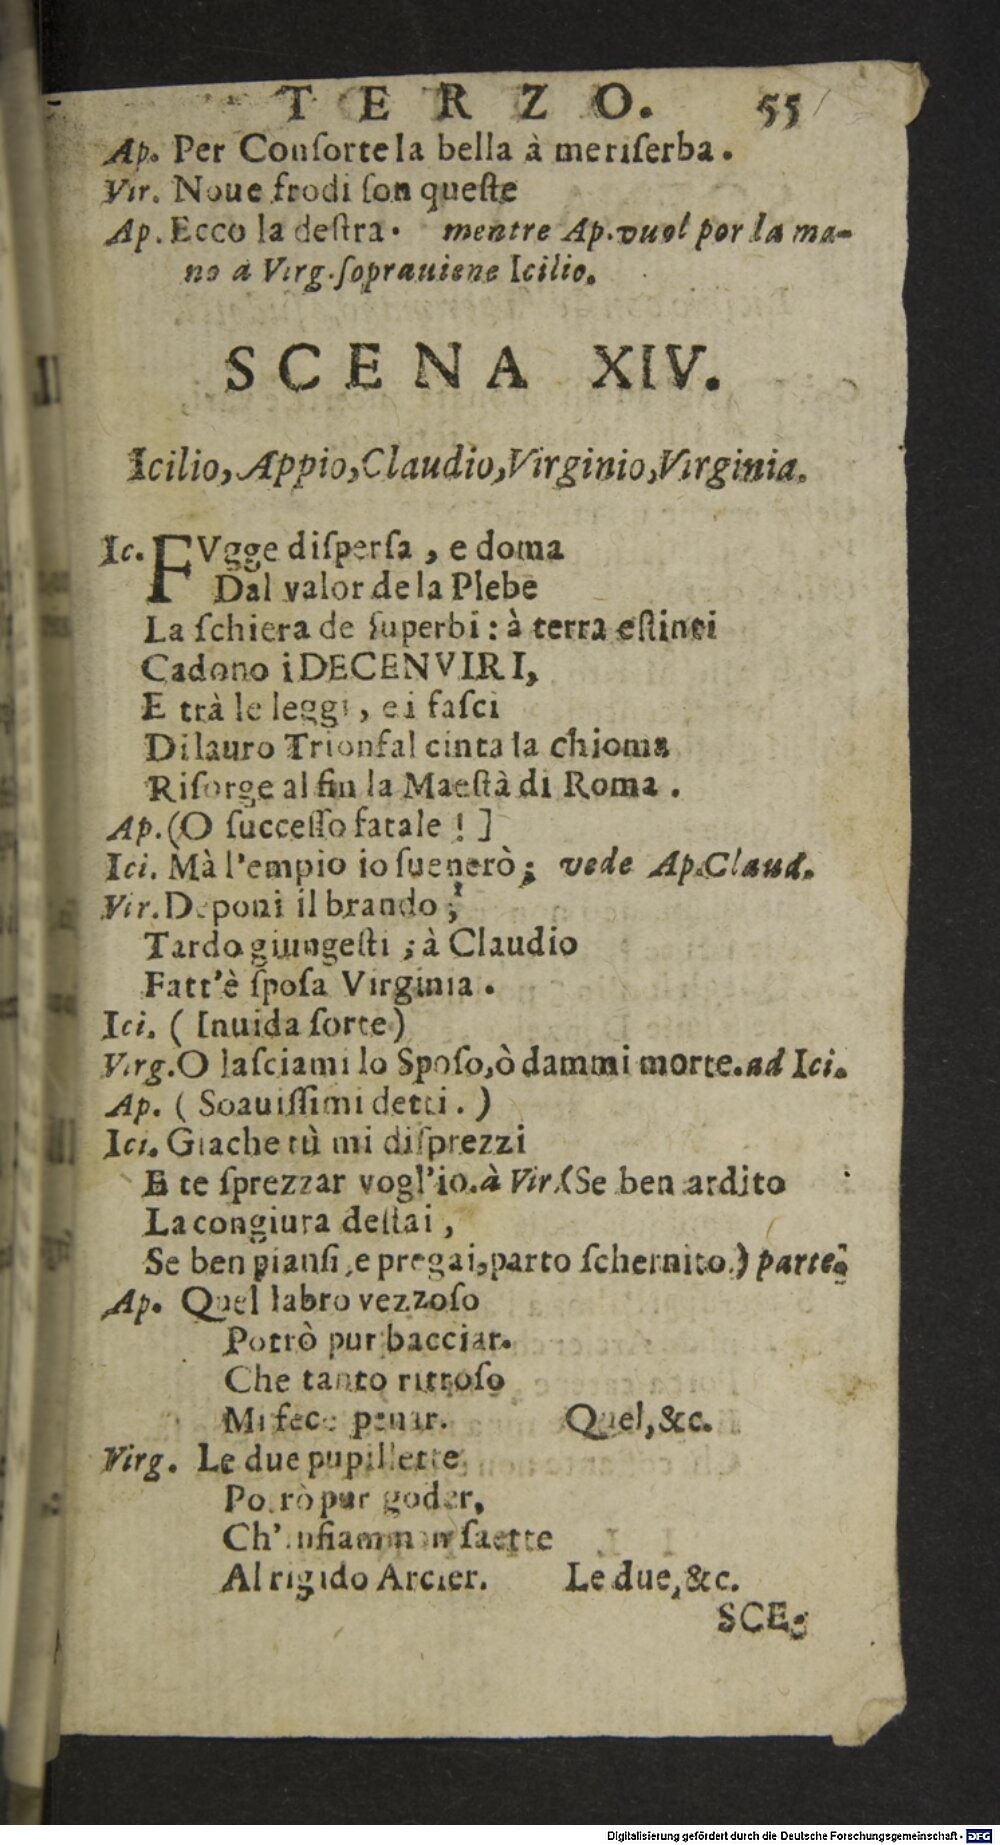 TERZO. 55
Ap. Per Conſorte la bella à me riſerba.
Vir. Noue frodi ſon queſte
Ap. Ecco la deſtra. mentre Ap. vuol por la ma-
no a Virg. ſoprauiene Icilio.
SCENA XIV.
Icilio, Appio, Claudio, Virginio, Virginia.
Ic. FVgge diſperſa, e doma
Dal valor de la Plebe
La ſchiera de ſuperbi: à terra eſtinti
Cadono i DECENVIRI,
E trà le leggi, e i faſci
Di lauro Trionfal cinta la chioma
Riſorge al fin la Maeſtà di Roma.
Ap. (O ſucceſſo fatale!]
Ici. Mà l'empio io ſuenerò; vede Ap. Claud.
Vir. Deponi il brando;
Tardo giungeſti; à Claudio
Fatt'è ſpoſa Virginia.
Ici. (Inuida ſorte)
Virg. O laſciami lo Spoſo, ò dammi morte. ad Ici.
Ap. (Soauiſſimi detti.)
Ici. Giache tù mi diſprezzi
E te ſprezzar vogl'io. à Vir. (Se ben ardito
La congiura deſtai,
Se ben pianſi, e pregai, parto ſchernito.) parte.
Ap. Quel labro vezzoſo
Potrò pur bacciar.
Che tanto ritroſo
Mi fece penar. Quel, &c.
Virg. Le due pupillette
Potrò pur goder,
Ch' infiamman ſaette
Al rigido Arcier. Le due, &c.
SCE-
Digitalisierung gefördert durch die Deutsche Forschungsgemeinschaft - DFG